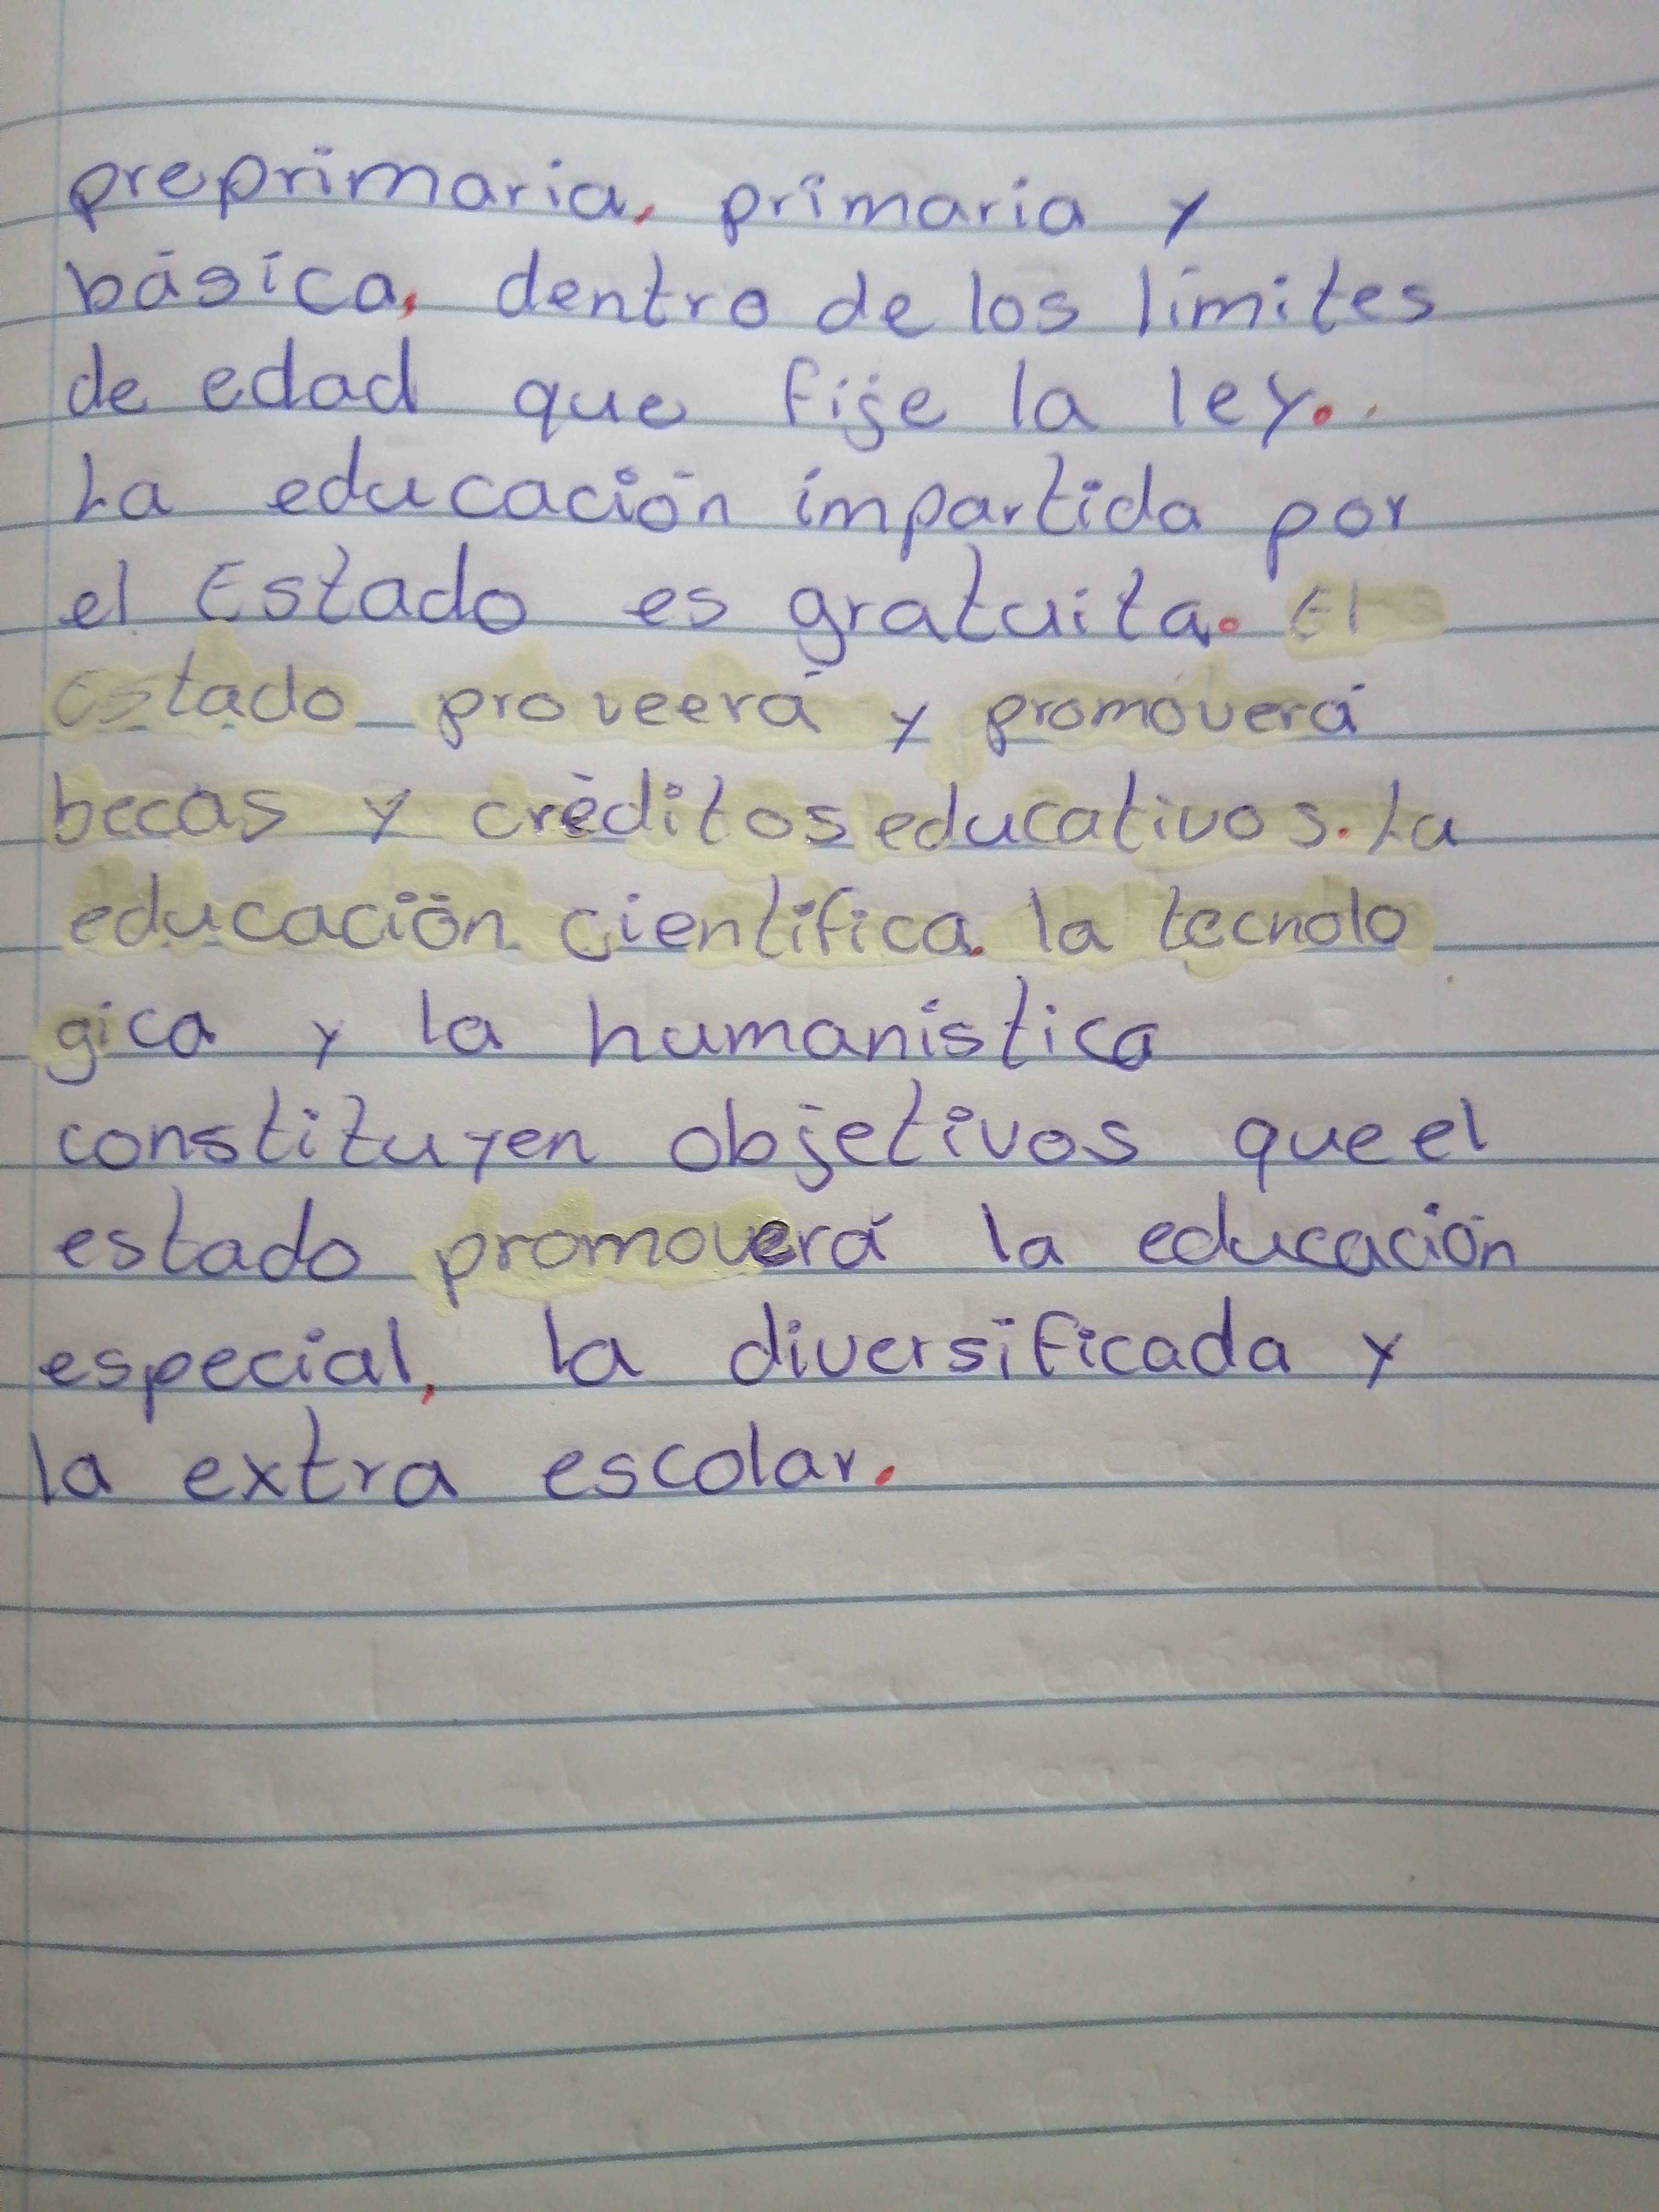 preprimaria, primaria y
básica, dentro de los límites
de edad que fije la ley.
La educación impartida por
el Estado es gratuita. El
Estado proveerá y promoverá
becas y créditos educativos. La
educación científica, la tecnolo
gica y la humanística
constituyen objetivos que el
estado promoverá la educación
especial, la diversificada y
la extra escolar.